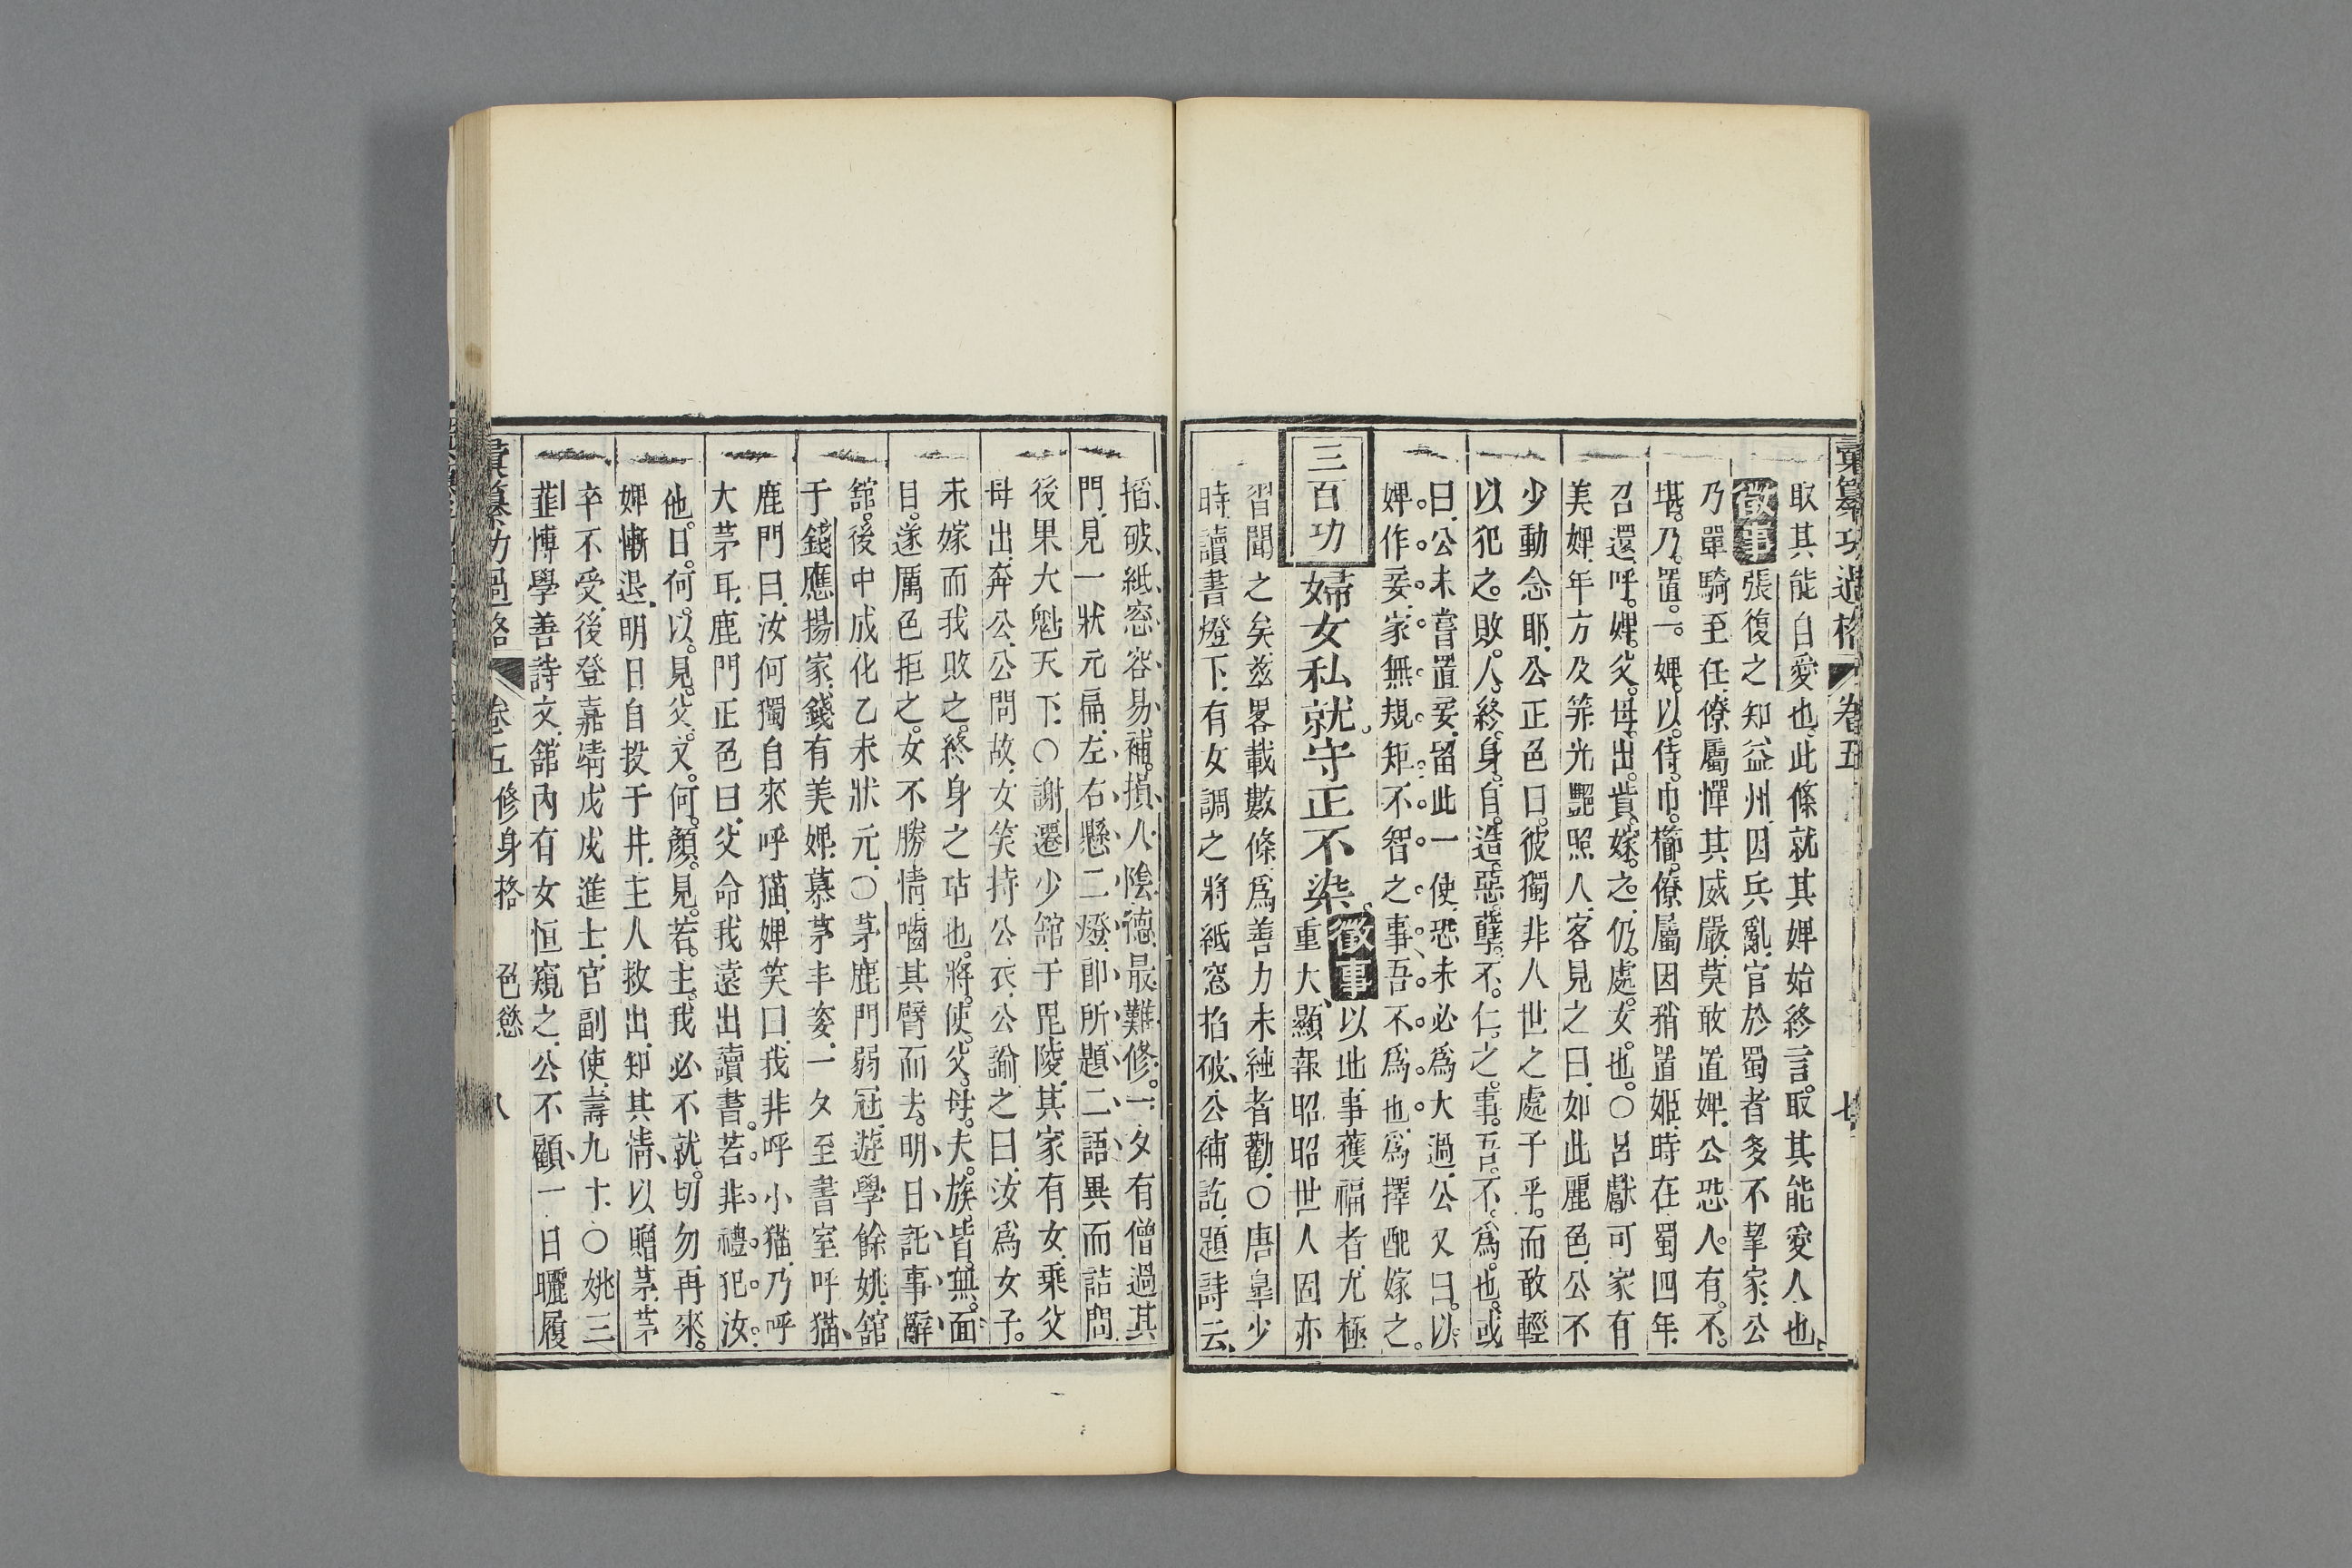 彙纂功過格 卷五 七
取其能自愛也此條就其婢始終言取其能愛人也
徵事張復之知益州因兵亂官於蜀者多不挈家公
乃單騎至任僚屬憚其威嚴莫敢置婢公恐人有不
堪乃置一婢以侍巾櫛僚屬因稍置姬時在蜀四年
召還呼婢父母出貲嫁之仍處女也〇呂獻可家有
美婢年方及笄光艷照人客見之曰如此麗色公不
少動念耶公正色曰彼獨非人世之處子乎而敢輕
以犯之敗人終身自造惡孽不仁之事吾不為也或
曰公未嘗置妾留此一使恐未必為大過公又曰以
婢作妾家無規矩不智之事吾不為也為擇配嫁之
三百功 婦女私就守正不染 徵事以此事獲福者尤極
重大顯報昭昭世人固亦
習聞之矣茲畧載數條為善力未純者勸〇唐皐少
時讀書燈下有女調之將紙窓掐破公補訖題詩云
搯破紙窓容易補損人陰德最難修一夕有僧過其
門見一狀元扁左右懸二燈卽所題二語異而詰問
後果大魁天下〇謝遷少舘于毘陵其家有女乘父
母出奔公公問故女笑持公衣公諭之曰汝為女子
未嫁而我敗之終身之玷也將使父母夫族皆無面
目遂厲色拒之女不勝情嚙其臂而去明日託事辭
舘後中成化乙未狀元〇茅鹿門弱冠遊學餘姚舘
于錢應揚家錢有美婢慕茅丰姿一夕至書室呼猫
鹿門曰汝何獨自來呼猫婢笑曰我非呼小猫乃呼
大茅耳鹿門正色曰父命我遠出讀書若非禮犯汝
他日何以見父又何顏見若主我必不就切勿再來
婢慚退明日自投于井主人救出知其情以贈茅茅
卒不受後登嘉靖戊戌進士官副使壽九十〇姚三
韮博學善詩文舘內有女恒窺之公不顧一日曬履
彙纂功過格 卷五修身格 色慾 八